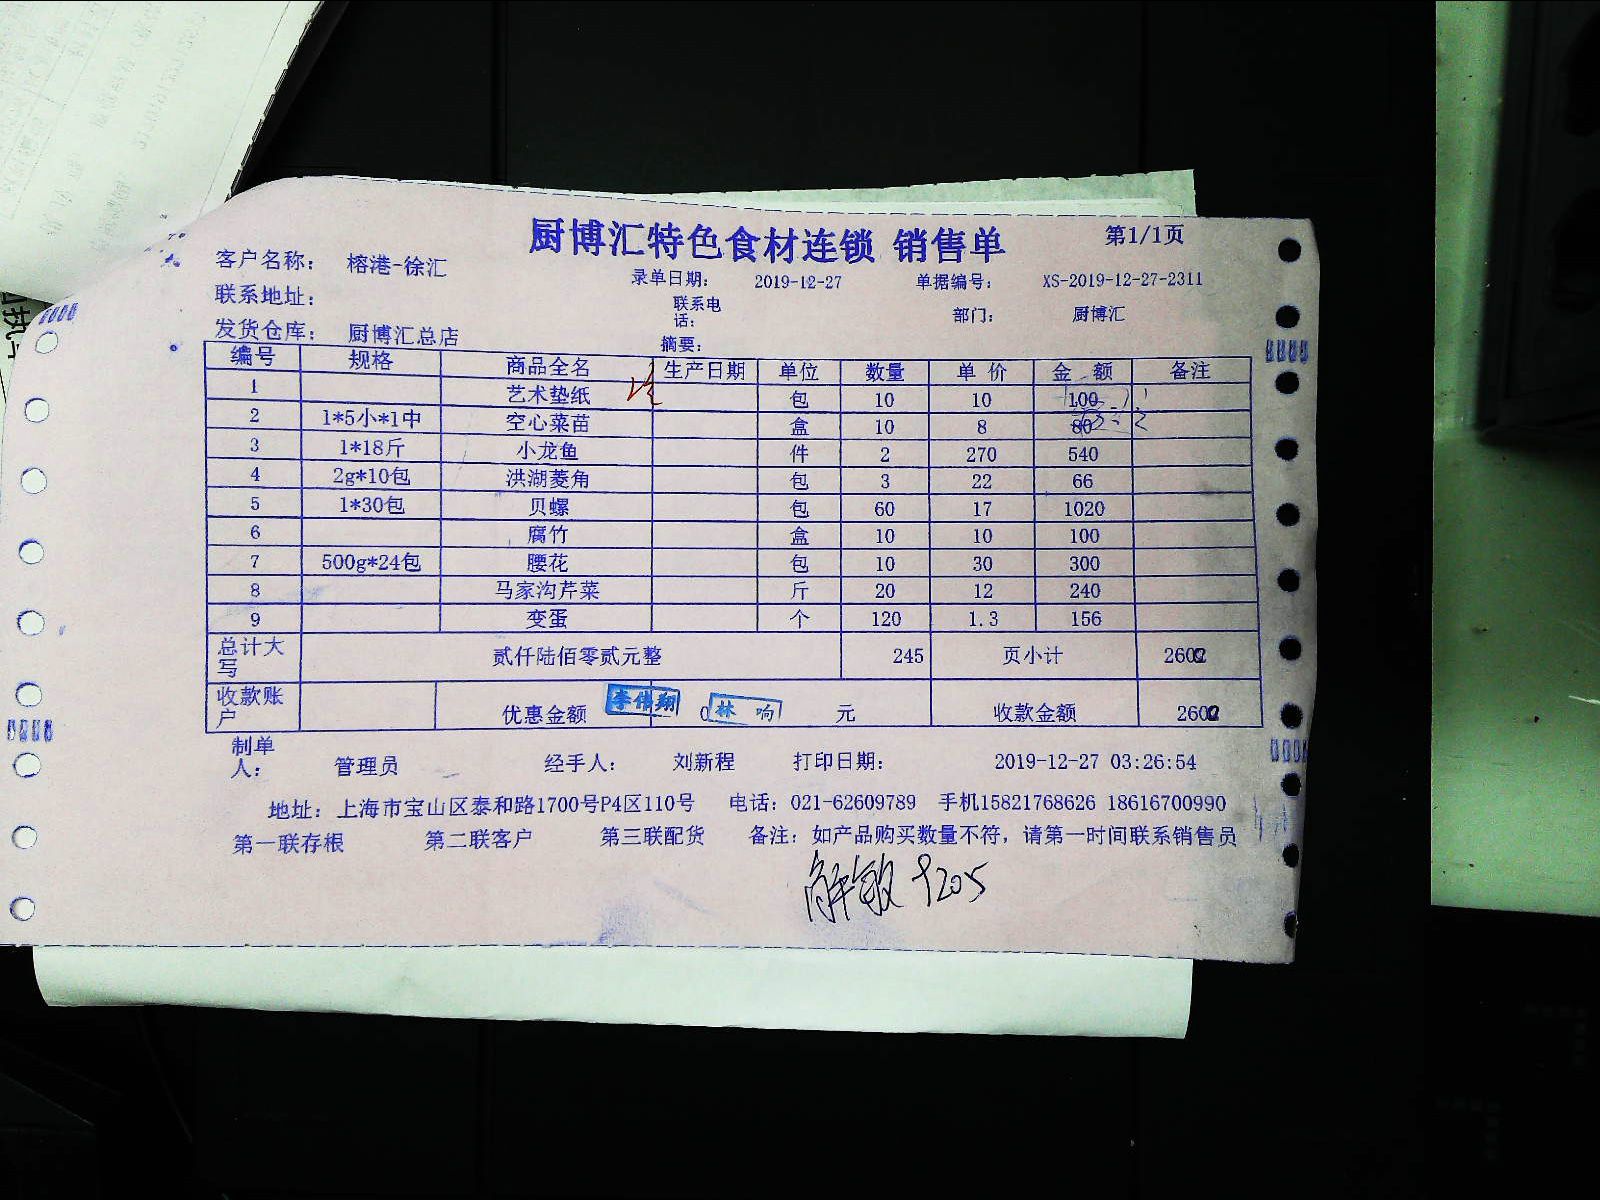 厨博汇特色食材连锁 销售单 第1/1页
客户名称： 榕港-徐汇 录单日期： 2019-12-27 单据编号： XS-2019-12-27-2311
联系地址： 联系电话： 部门： 厨博汇
发货仓库： 厨博汇总店 摘要：
编号 规格 商品全名 生产日期 单位 数量 单 价 金 额 备注
1 艺术垫纸 包 10 10 100
2 1*5小*1中 空心菜苗 盒 10 8 80
3 1*18斤 小龙鱼 件 2 270 540
4 2g*10包 洪湖菱角 包 3 22 66
5 1*30包 贝螺 包 60 17 1020
6 腐竹 盒 10 10 100
7 500g*24包 腰花 包 10 30 300
8 马家沟芹菜 斤 20 12 240
9 变蛋 个 120 1.3 156
总计大写 贰仟陆佰零贰元整 245 页小计 2602
收款账户 优惠金额 李伟翔 0 林 响 元 收款金额 2602
制单人： 管理员 经手人： 刘新程 打印日期： 2019-12-27 03:26:54
地址：上海市宝山区泰和路1700号P4区110号 电话：021-62609789 手机15821768626 18616700990
第一联存根 第二联客户 第三联配货 备注：如产品购买数量不符，请第一时间联系销售员
解敏 9205